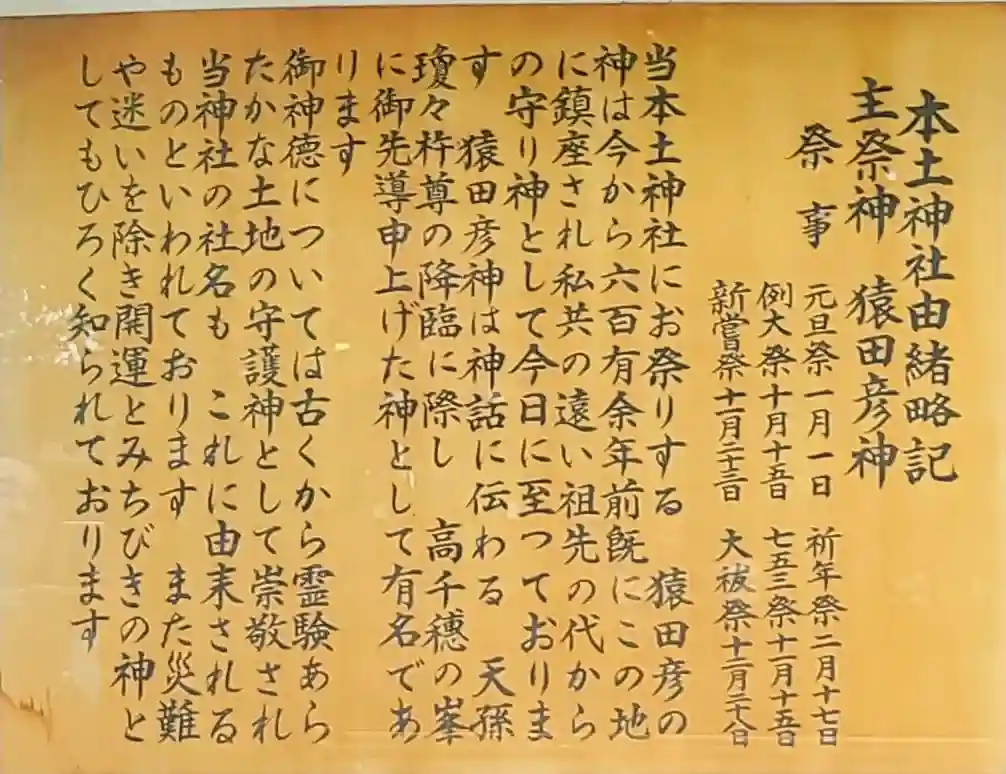 本土神社由緒略記
主祭神 猿田彦神
祭事
元旦祭 一月一日 祈年祭 二月十七日
例大祭 十月十五日 七五三祭 十一月十五日
新嘗祭 十一月二十三日 大祓祭 十二月二十八日
当本土神社にお祭りする 猿田彦の
神は今から六百有余年前既にこの地
に鎮座され私共の遠い祖先の代から
の守り神として今日に至つておりま
す 猿田彦神は神話に伝わる 天孫
瓊々杵尊の降臨に際し 高千穂の峯
に御先導申上げた神として有名であ
ります
御神徳については古くから霊験あら
たかな土地の守護神として崇敬され
当神社の社名も これに由来される
ものといわれております また災難
や迷いを除き開運とみちびきの神と
してもひろく知られております